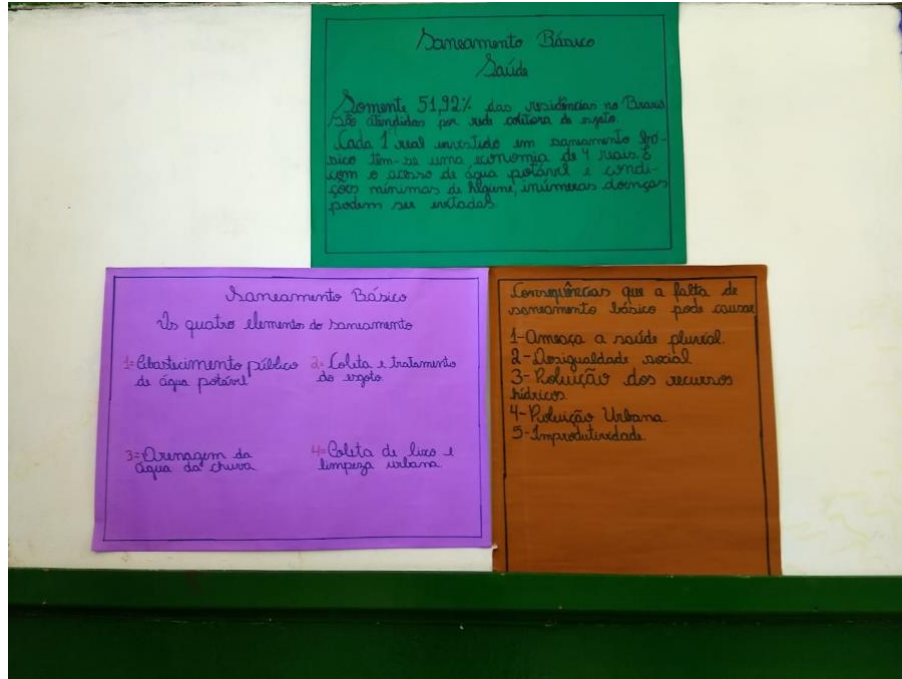 Saneamento Básico
Saúde
Somente 51,92% das residências no Brasil
são atendidas por rede coletora de esgoto
Cada 1 real investido em saneamento bá-
sico tem-se uma economia de 4 reais. E
com o acesso de água potável e condi-
ções mínimas de higiene, inúmeras doenças
podem ser evitadas.
Saneamento Básico
Os quatro elementos do saneamento
1= Abastecimento público
de água potável
2= Coleta e tratamento
do esgoto
3= Drenagem da
água da chuva
4= Coleta de lixo e
limpeza urbana
Consequências que a falta de
saneamento básico pode causar
1-Ameaça a saúde
2-Desigualdade social
3-Poluição dos recursos
hídricos
4-Poluição Urbana
5-Improdutividade